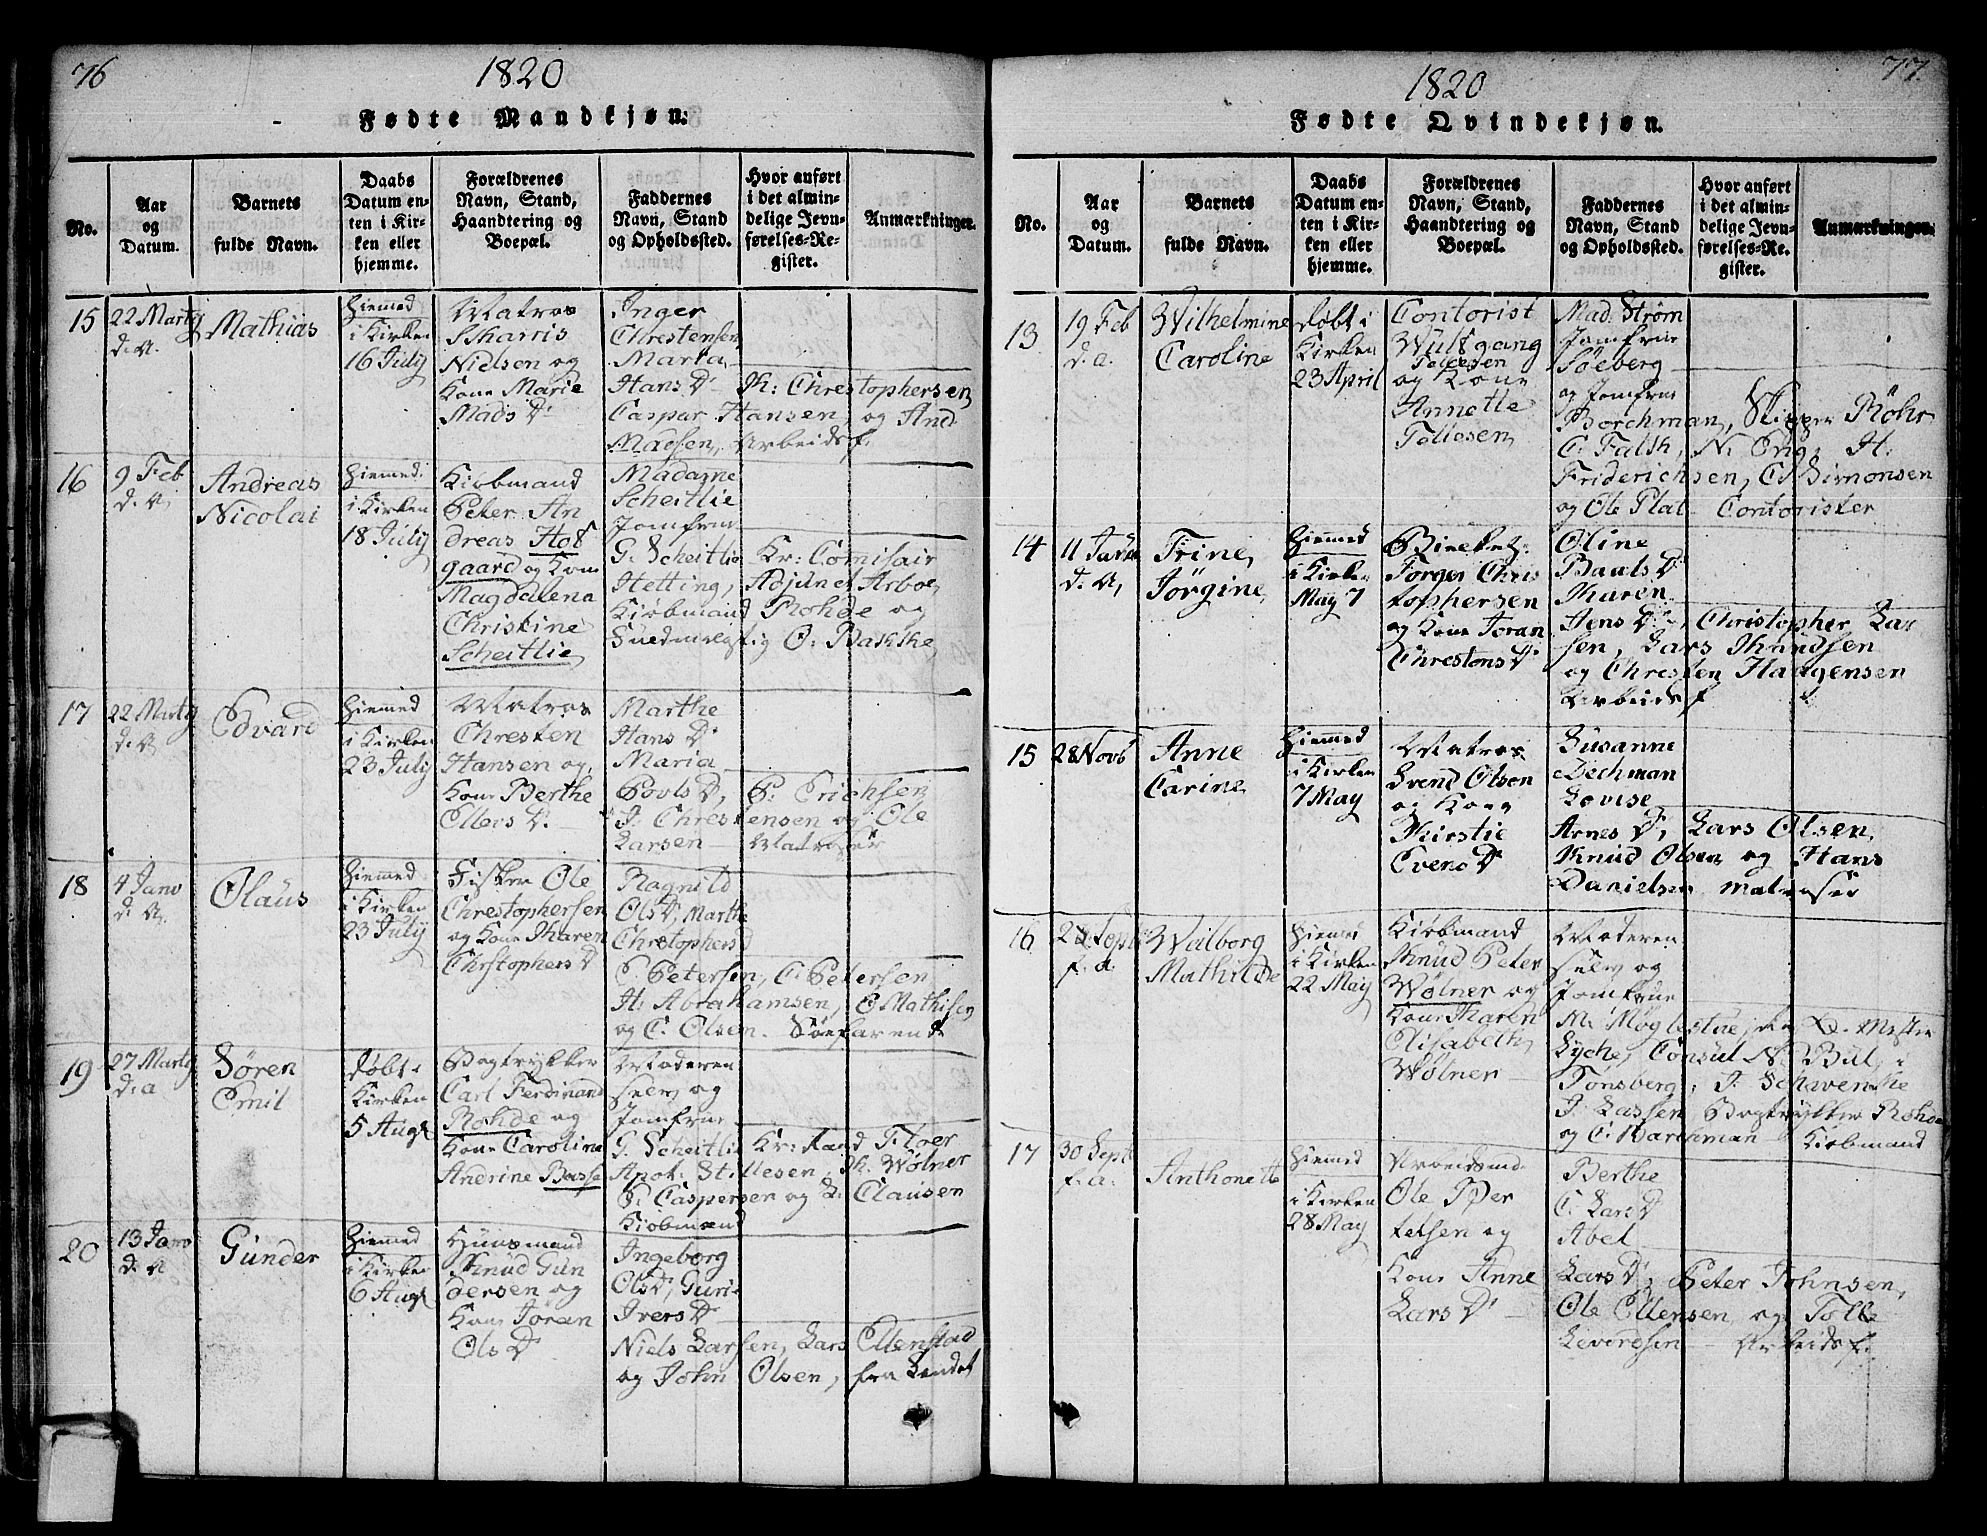 76
1820
Fødte Mandkjøn.
No.
Aar og Datum.
Barnets fulde Navn.
Daabs Datum enten i Kirken eller hjemme.
Forældrenes Navn, Stand, Haandtering og Boepæl.
Faddernes Navn, Stand og Opholdssted.
Hvor anført i det almindelige Jevnførelses-Register.
Anmærkninger.
15
22 Martÿ
d. A.
Mathias
Hiemed
i Kirken
16 July
Matros
Harris
Nielsen og
Kone Marie
Mads D.
Inger
Chrestensen,
Maria
Hans D. K: Chrestophersen,
Caspar Hansen, og And
Madsen, Arbeidsf.
16
9 Feb
d. A.
Andreas
Nicolai
Hiemed:
i Kirken
18 July
Kiøbmand
Peter An
dreas Hof
gaard og Kone
Magdalena
Christine
Scheitlie
Madame
Scheitlie
Jomfrue
G. Scheitlie Kr: Comisair
Hetting, Adjunct Arboe,
Kiøbmand Rohde og
O: Bakke,
17
22 Martÿ
d. A.
Edvard
Hiemed
i Kirken
23 July
Matros
Chresten
Hansen og
Kone Berthe
Ellevs D.
Marthe
Hans D.
Maria
Povls D, P: Erichsen
J. Chrestensen og Ole
Larsen - Matroser
18
4 Janv
d. A.
Olaus
Hiemed
i Kirken
23 July
Fisker Ole
Chrestophersen
og Kone Karen
Chrstophers D
Ragnild
Ols D, Marthe
Chrstophers D
P. Petersen, C. Petersen
H: Abrahamsen, C. Mathisen
og C. Olsen. Søefarende
19
27 Martÿ
d. a
Søren
Emil
døbt i
Kirken
5 Augt
Bogtrykker
Carl Ferdinand
Rohde og
Kone Caroline
Andrine Basse
Moderen
selv og
Jomfrue
G. Scheitlie Kr: Raad Floer
Apot: Stillesen, K. Wølner
P. Caspersen og L. Clausen
Kiøbmænd
20
13 Janv
d. A
Gunder
Hiemed
i Kirken
6 Augt
Huusmand
Knud Gun
dersen og
Kone Joran
Ols D
Ingeborg
Ols D, Guri
Ivers D
Niels Larsen, Lars Ellenstad
og John Olsen, fra Landet
77.
1820
Fødte Qvindekjøn.
No.
Aar og Datum.
Barnets fulde Navn.
Daabs Datum enten i Kirken eller hjemme.
Forældrenes Navn, Stand, Haandtering og Boepæl.
Faddernes Navn, Stand og Opholdssted.
Hvor anført i det almindelige Jevnførelses-Register.
Anmærkninger.
13
19 Feb
d. a.
Wilhelmine
Caroline
døbt i
Kirken
23 April
Contorist
Wulfgang
Tellesen
og Kone
Annette
Tellesen
Mad: Strøm
Jomfrue
Søeberg
og Jomfrue
Borchman, Skipper Røhr
C. Falch, N. Eng, H.
Friderichsen, C. Simonsen
og Ole Plat - Contorister
14
11 Janv
d. A,
Trine
Jørgine
Hiemed
i Kirken
May 7
Torger Chris
tophersen
og Kone Joran
Chrestens D
Oline
Pauls D
Karen
Jens D, Christopher Lar
sen, Lars Knudsen
og Chresten Haagensen
Arbeidsf
15
28 Novb
Anne
Carine
Hiemed
i Kirken
7 May
Matros
Svend Olsen
og Kone
Kirstie
Evens D
Susanne
Dechman
Lovise
Arnes D, Lars Olsen,
Knud Olsen og Hans
Danielsen matroser
16
Sept
f. a.
Walborg
Mathilde
Hiemed
i Kirken
22 May
Kiøbmand
Knud Peter
Wølner og
Kone Karen
Elisabeth
Wølner
Moderen
selv og
Jomfrue
M. Møglestue,
Lyche, Consul N. Bul, i
Tønsberg, J. Schavenke
J. Lassen, Bogtrykker Rohde
og C. Barchman Kiøbmænd
17
30 Sept
f. a.
Anthonette
Hiemed
i Kirken
28 May
Arbeidsmd.
Ole Per
telsen og
Kone Anne
Lars D
Berthe
C. Lars D
Abel
Lars D, Peter Johnsen,
Ole Ellensen og Tolle
Leverdsen - Arbeidsf.